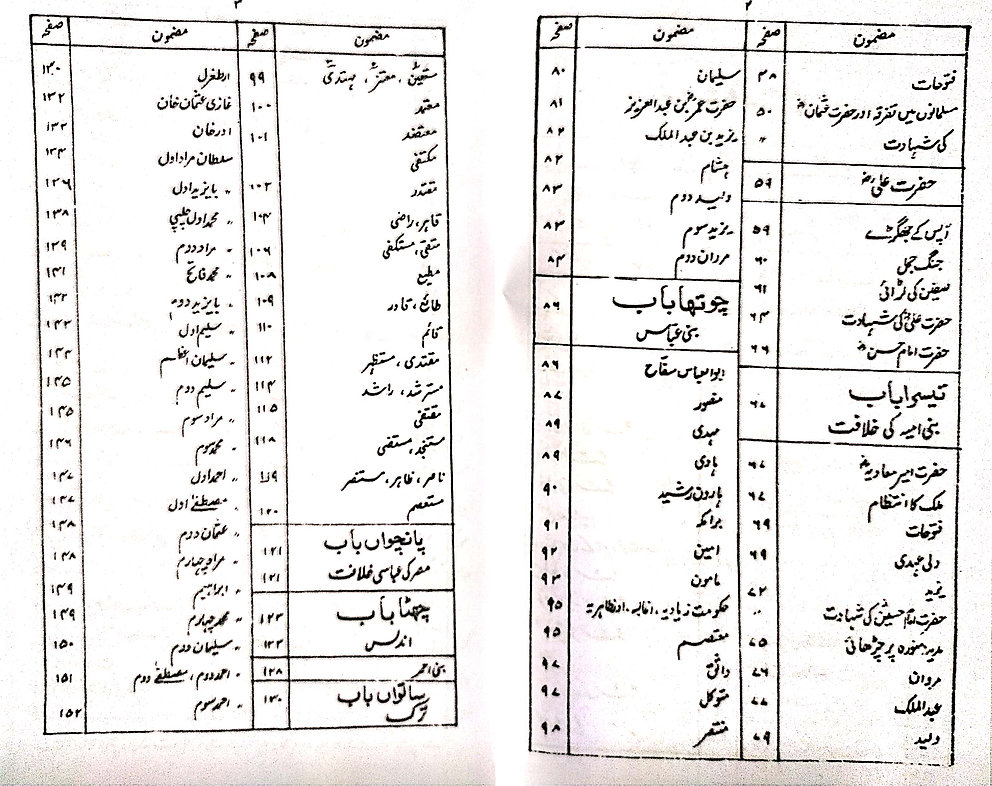 ۲
مضمون صفحہ
فتوحات ۴۸
مسلمانوں میں تفرقہ اور حضرت عثمانؓ ۵۰
کی شہادت 〃
حضرت علیؓ ۵۹
آپس کے جھگڑے ۵۹
جنگ جمل ۶۰
صفین کی لڑائی ۶۱
حضرت علیؓ کی شہادت ۶۴
حضرت امام حسنؓ ۶۶
تیسرا باب ۶۷
بنی امیہ کی خلافت
حضرت امیر معاویہؓ ۶۷
ملک کا انتظام ۶۷
فتوحات ۶۹
ولی عہدی ۶۹
یزید ۷۲
حضرت امام حسینؓ کی شہادت 〃
مدینہ منورہ پر چڑھائی ۷۵
مروان ۷۶
عبدالملک ۷۷
ولید ۷۹
مضمون صفحہ
سلیمان ۸۰
حضرت عمرؓ بن عبدالعزیز ۸۱
یزید بن عبدالملک ۸۲
ہشام ۸۲
ولید دوم ۸۳
یزید سوم ۸۳
مروان دوم ۸۴
چوتھا باب ۸۶
بنی عباس
ابوالعباس سفاح ۸۶
منصور ۸۷
مہدی ۸۹
ہادی ۸۹
ہارون رشید ۹۰
برامکہ ۹۱
امین ۹۲
مامون ۹۳
حکومت زیادیہ، اغالبہ، اور ظاہریہ ۹۵
معتصم ۹۵
واثق ۹۷
متوکل ۹۷
منتصر ۹۸
۳
مضمون صفحہ
مستعین، معتز، مہتدی ۹۹
معتمد ۱۰۰
معتضد ۱۰۱
مکتفی
مقتدر ۱۰۲
قاہر، راضی ۱۰۴
متقی، مستکفی ۱۰۶
مطیع ۱۰۸
طائع، قادر ۱۰۹
قائم ۱۱۰
مقتدی، مستظہر ۱۱۲
مسترشد، راشد ۱۱۴
مقتفی ۱۱۵
مستنجد، مستضی ۱۱۸
ناصر، ظاہر، مستنصر ۱۱۹
مستعصم ۱۲۰
پانچواں باب ۱۲۱
مصر کی عباسی خلافت ۱۲۱
چھٹا باب ۱۲۳
اندلس ۱۲۳
بنی احمر ۱۲۸
ساتواں باب ۱۳۰
ترک
مضمون صفحہ
ارطغرل ۱۳۰
غازی عثمان خان ۱۳۲
اورخان ۱۳۲
سلطان مراد اول ۱۳۴
〃 بایزید اول ۱۳۶
〃 محمد اول چلپی ۱۳۸
〃 مراد دوم ۱۳۹
〃 محمد فاتح ۱۴۱
〃 بایزید دوم ۱۴۲
〃 سلیم اول ۱۴۳
〃 سلیمان اعظم ۱۴۴
〃 سلیم دوم ۱۴۵
〃 مراد سوم ۱۴۵
〃 محمد سوم ۱۴۶
〃 احمد اول ۱۴۷
〃 مصطفےٰ اول ۱۴۷
〃 عثمان دوم ۱۴۸
〃 مراد چہارم ۱۴۸
〃 ابراہیم ۱۴۹
〃 محمد چہارم ۱۴۹
〃 سلیمان دوم ۱۵۰
〃 احمد دوم، مصطفےٰ دوم ۱۵۱
〃 احمد سوم ۱۵۲